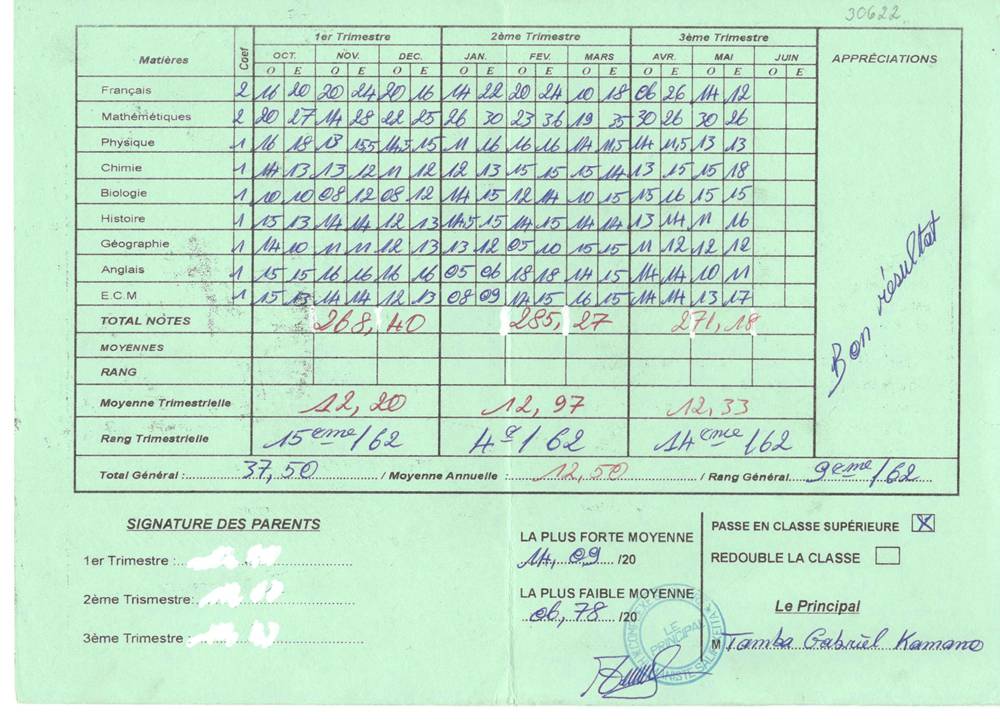 30622
1er Trimestre 2ème Trimestre 3ème Trimestre
Matières Coef OCT. NOV. DEC. JAN. FEV. MARS AVR. MAI JUIN APPRÉCIATIONS
O E O E O E O E O E O E O E O E O E
Français 2 16 20 20 24 20 16 14 22 20 24 10 18 06 26 14 12
Mathémétiques 2 20 27 14 28 22 25 26 30 23 36 19 35 30 26 30 26
Physique 1 16 18 13 15,5 14,5 15 11 16 16 16 14 11,5 14 11,5 13 13
Chimie 1 14 13 13 12 11 12 12 13 15 15 15 14 13 15 15 18
Biologie 1 10 10 08 12 08 12 14 15 12 14 10 15 15 16 15 15
Histoire 1 15 13 14 14 12 13 14,5 15 14 15 14 14 13 14 11 16
Géographie 1 14 10 11 11 12 13 13 12 05 10 15 15 11 12 12 12
Anglais 1 15 15 16 16 16 16 05 06 18 18 14 15 14 14 10 11
E.C.M 1 15 13 14 14 12 13 08 09 14 15 16 15 14 14 13 17
TOTAL NOTES 268, 40 285, 27 271, 18
MOYENNES
RANG
Bon résultat
Moyenne Trimestrielle 12, 20 12, 97 12, 33
Rang Trimestrielle 15ème/62 4e/62 14ème/62
Total Général : 37,50 / Moyenne Annuelle : 12,50 / Rang Général 9ème/62
SIGNATURE DES PARENTS
1er Trimestre :
2ème Trismestre:
3ème Trimestre :
LA PLUS FORTE MOYENNE
14, 09 /20
LA PLUS FAIBLE MOYENNE
06, 78 /20
PASSE EN CLASSE SUPÉRIEURE X
REDOUBLE LA CLASSE
Le Principal
M Tamba Gabriel Kamano
LE PRINCIPAL